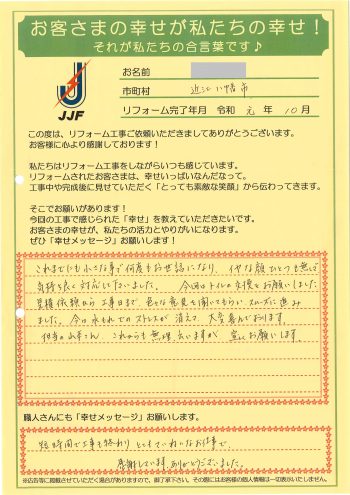 お客さまの幸せが私たちの幸せ！
それが私たちの合言葉です♪
JJF
お名前
市町村 近江八幡市
リフォーム完了年月 令和 元 年 10 月
この度は、リフォーム工事ご依頼いただきましてありがとうございます。
お客様に心より感謝しております！
私たちはリフォーム工事をしながらいつも感じています。
リフォームされたお客さまは、幸せいっぱいなんだなって。
工事中や完成後に見せていただく「とっても素敵な笑顔」から伝わってきます。
そこでお願いがあります！
今回の工事で感じられた「幸せ」を教えていただきたいです。
お客さまの幸せが、私たちの活力とやりがいになります。
ぜひ「幸せメッセージ」お願いします！
これまでにも小さな事で何度もお世話になり、イヤな顔ひとつも無しで
気持ち良く対応して下さいました。 今回はトイレの交換をお願いしました
見積依頼から工事日まで、色々な意見を聞いてもらい、スムーズに進み
ました。今は水もれでのストレスが消えて、大変喜んでおります。
担当の山本さん、これからも無理言いますが、宜しくお願いします。
職人さんにも「幸せメッセージ」お願いします。
短時間で工事も終わり とてもていねいなお仕事で、
感謝しています。ありがとうございました。
※広告等に掲載させていただく場合がありますので、御了承下さい。その際にはお客様の個人情報は一切表示いたしません。